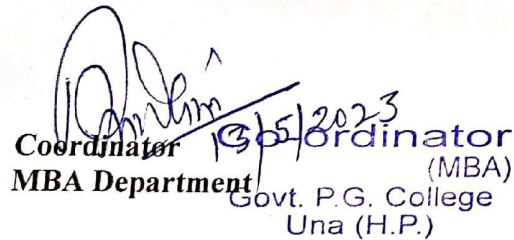 13/5/2023
Coordinator
MBA Department
Co-ordinator
(MBA)
Govt. P.G. College
Una (H.P.)